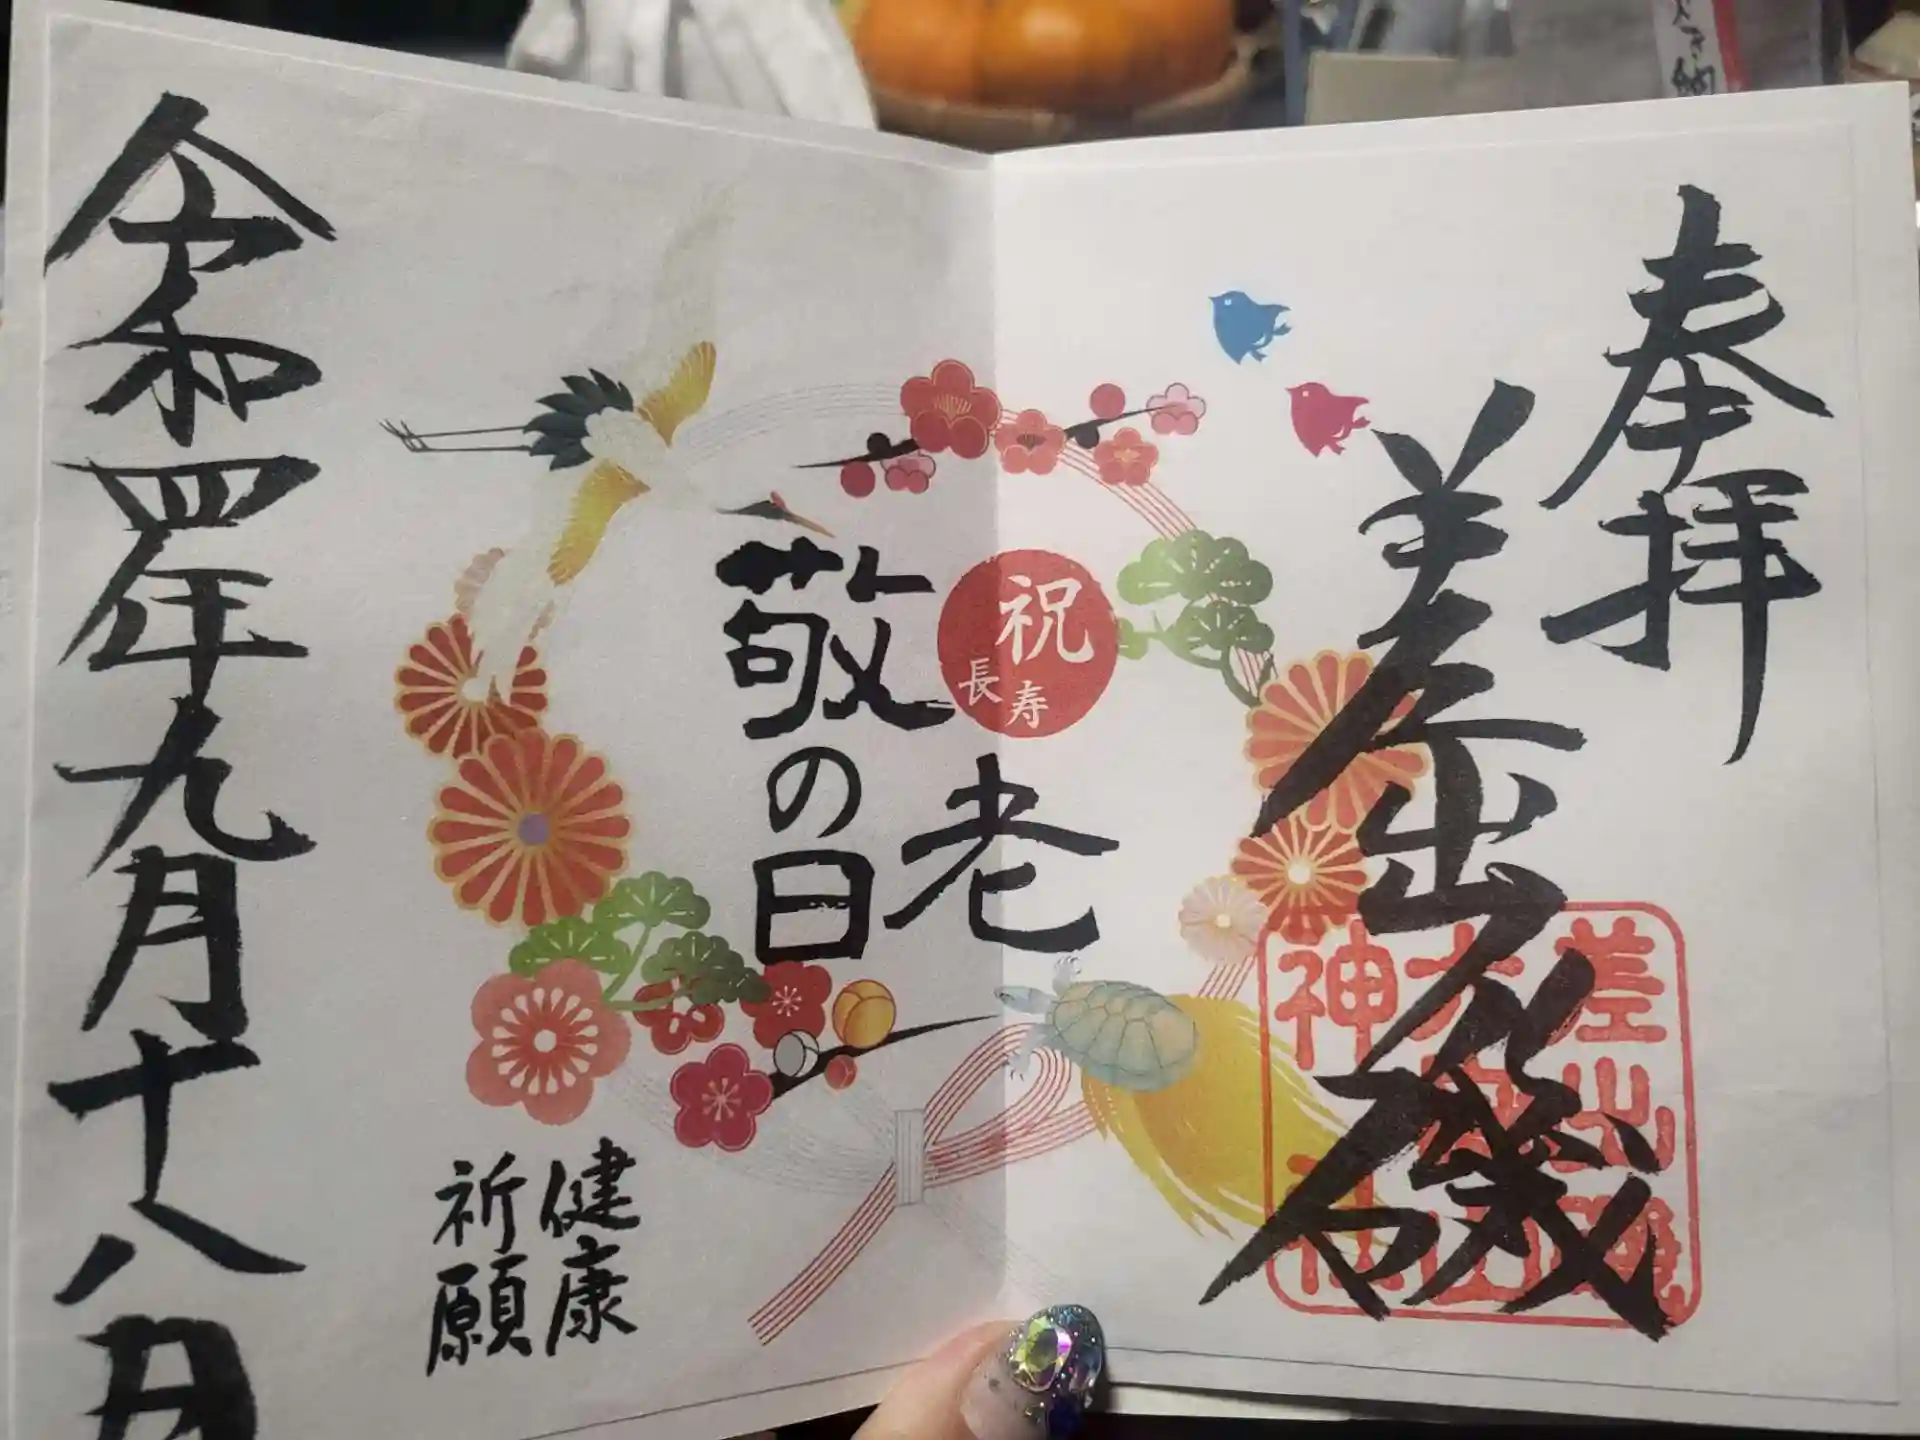 奉拝
差出磯
差出磯
大嶽山
神社
祝
長寿
敬老の日
健康
祈願
令和四年九月十八日